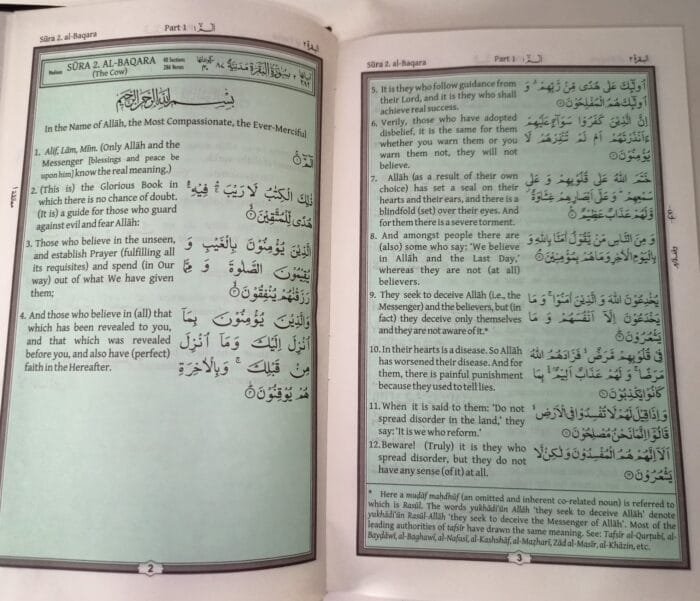 Sūra 2. al-Baqara
Part 1
الٓمّٓ ١
البقرة ٢
Madinan
SŪRA 2. AL-BAQARA
(The Cow)
40 Sections
286 Verses
سُوْرَةُ الْبَقَرَةِ مَدَنِيَّةٌ
بِسْمِ اللهِ الرَّحْمٰنِ الرَّحِيْمِ
In the Name of Allāh, the Most Compassionate, the Ever-Merciful
1. Alif, Lām, Mīm. (Only Allāh and the
Messenger [blessings and peace be
upon him] know the real meaning.)
الٓمّٓ ۚ۝١
2. (This is) the Glorious Book in
which there is no chance of doubt.
(It is) a guide for those who guard
against evil and fear Allāh:
ذٰلِكَ الْكِتٰبُ لَا رَيْبَ ۛۖ فِيْهِ ۛۚ
هُدًى لِّلْمُتَّقِيْنَ ۙ۝٢
3. Those who believe in the unseen,
and establish Prayer (fulfilling all
its requisites) and spend (in Our
way) out of what We have given
them;
الَّذِيْنَ يُؤْمِنُوْنَ بِالْغَيْبِ وَ
يُقِيْمُوْنَ الصَّلٰوةَ وَ مِمَّا
رَزَقْنٰهُمْ يُنْفِقُوْنَ ۙ۝٣
4. And those who believe in (all) that
which has been revealed to you,
and that which was revealed
before you, and also have (perfect)
faith in the Hereafter.
وَالَّذِيْنَ يُؤْمِنُوْنَ بِمَآ
اُنْزِلَ اِلَيْكَ وَ مَآ اُنْزِلَ
مِنْ قَبْلِكَ ۚ وَ بِالْاٰخِرَةِ
هُمْ يُوْقِنُوْنَ ؕ۝٤
2
Sūra 2. al-Baqara
Part 1
الٓمّٓ ١
البقرة ٢
5. It is they who follow guidance from
their Lord, and it is they who shall
achieve real success.
اُولٰٓئِكَ عَلٰى هُدًى مِّنْ رَّبِّهِمْ ۗ وَ
اُولٰٓئِكَ هُمُ الْمُفْلِحُوْنَ ۝٥
6. Verily, those who have adopted
disbelief, it is the same for them
whether you warn them or you
warn them not, they will not
believe.
اِنَّ الَّذِيْنَ كَفَرُوْا سَوَآءٌ عَلَيْهِمْ
ءَاَنْذَرْتَهُمْ اَمْ لَمْ تُنْذِرْهُمْ لَا
يُؤْمِنُوْنَ ۝٦
7. Allāh (as a result of their own
choice) has set a seal on their
hearts and their ears, and there is a
blindfold (set) over their eyes. And
for them there is a severe torment.
خَتَمَ اللهُ عَلٰى قُلُوْبِهِمْ وَ عَلٰى
سَمْعِهِمْ ؕ وَ عَلٰٓى اَبْصَارِهِمْ غِشَاوَةٌ ۫
وَّلَهُمْ عَذَابٌ عَظِيْمٌ ۝٧
8. And amongst people there are
(also) some who say: ‘We believe
in Allāh and the Last Day,’
whereas they are not (at all)
believers.
وَ مِنَ النَّاسِ مَنْ يَّقُوْلُ اٰمَنَّا بِاللهِ وَ
بِالْيَوْمِ الْاٰخِرِ وَمَا هُمْ بِمُؤْمِنِيْنَ ۘ۝٨
9. They seek to deceive Allāh (i.e., the
Messenger) and the believers, but (in
fact) they deceive only themselves
and they are not aware of it.*
يُخٰدِعُوْنَ اللهَ وَ الَّذِيْنَ اٰمَنُوْا ۚ وَ مَا
يَخْدَعُوْنَ اِلَّآ اَنْفُسَهُمْ وَ مَا
يَشْعُرُوْنَ ؕ۝٩
10. In their hearts is a disease. So Allāh
has worsened their disease. And for
them, there is painful punishment
because they used to tell lies.
فِيْ قُلُوْبِهِمْ مَّرَضٌ ۙ فَزَادَهُمُ اللهُ
مَرَضًا ۚ وَ لَهُمْ عَذَابٌ اَلِيْمٌۢ ۙ بِمَا
كَانُوْا يَكْذِبُوْنَ ۝١٠
11. When it is said to them: ‘Do not
spread disorder in the land,’ they
say: ‘It is we who reform.’
وَ اِذَا قِيْلَ لَهُمْ لَا تُفْسِدُوْا فِي الْاَرْضِ ۙ
قَالُوْٓا اِنَّمَا نَحْنُ مُصْلِحُوْنَ ۝١١
12. Beware! (Truly) it is they who
spread disorder, but they do not
have any sense (of it) at all.
اَلَآ اِنَّهُمْ هُمُ الْمُفْسِدُوْنَ وَ لٰكِنْ لَّا
يَشْعُرُوْنَ ۝١٢
* Here a muḍāf maḥdhūf (an omitted and inherent co-related noun) is referred to
which is Rasūl. The words yukhādi‘ūn Allāh ‘they seek to deceive Allāh’ denote
yukhādi‘ūn Rasūl-Allāh ‘they seek to deceive the Messenger of Allāh’. Most of the
leading authorities of tafsīr have drawn the same meaning. See: Tafsīr al-Qurṭubī, al-
Bayḍāwī, al-Baghawī, al-Nafasī, al-Kashshāf, al-Maẓharī, Zād al-Masīr, al-Khāzin, etc.
3